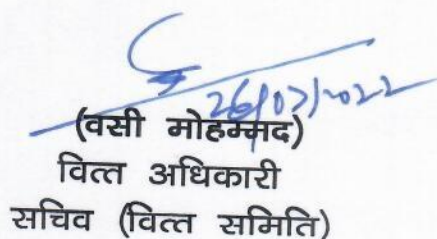 26/07/2022
(वसी मोहम्मद)
वित्त अधिकारी
सचिव (वित्त समिति)